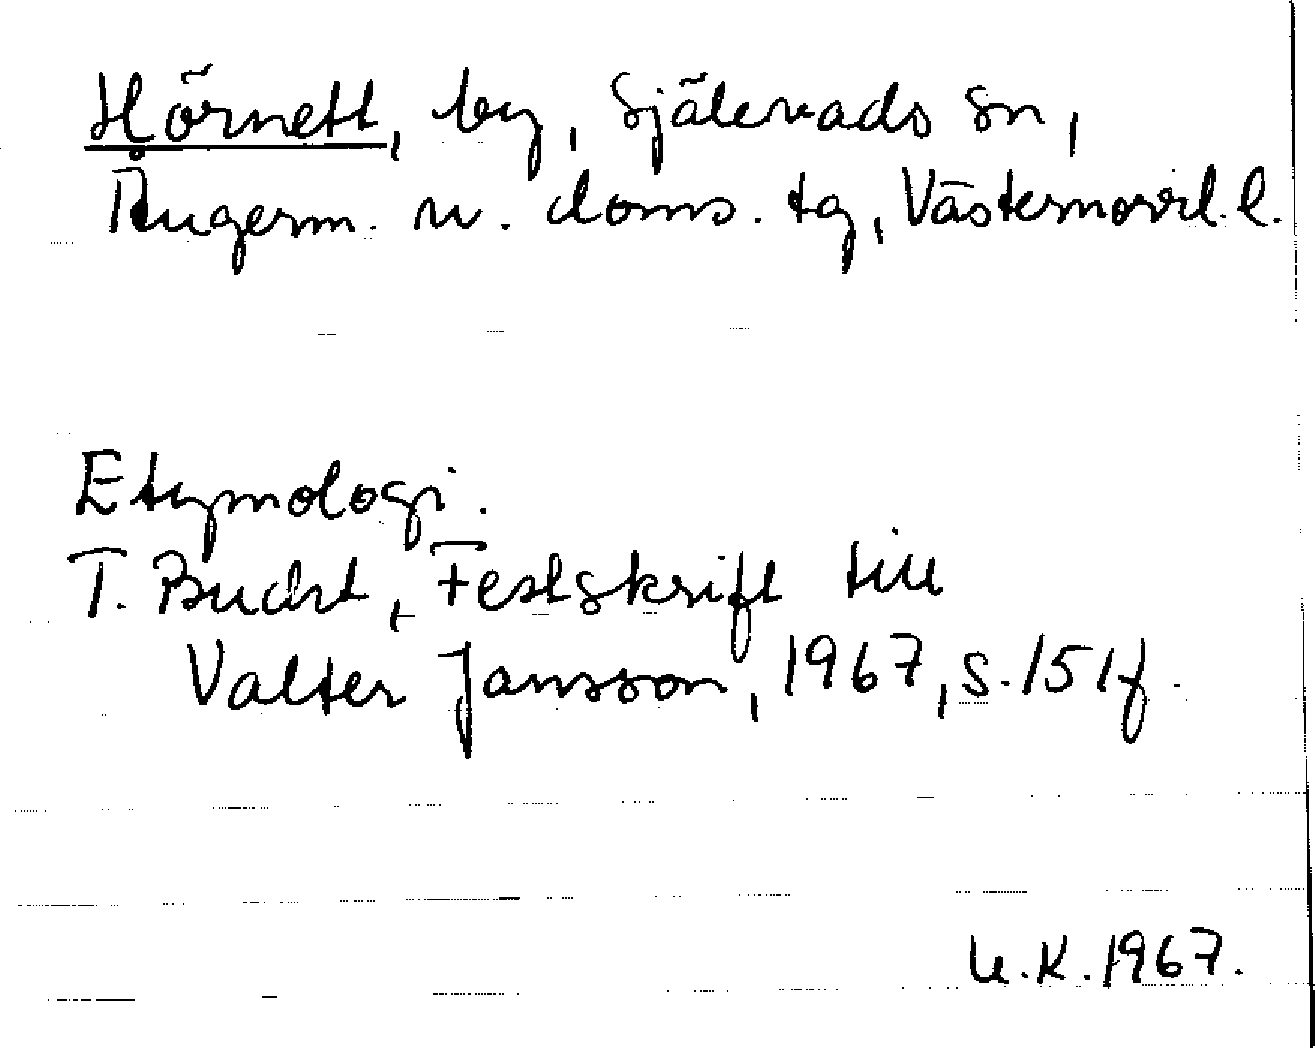 Hörnett, by, Själevads sn,
Ångerm. n. doms. tg, Västernorrl. l.
Etymologi.
T. Bucht, Festskrift till
Valter Jansson, 1967, s. 151f.
U.K. 1967.